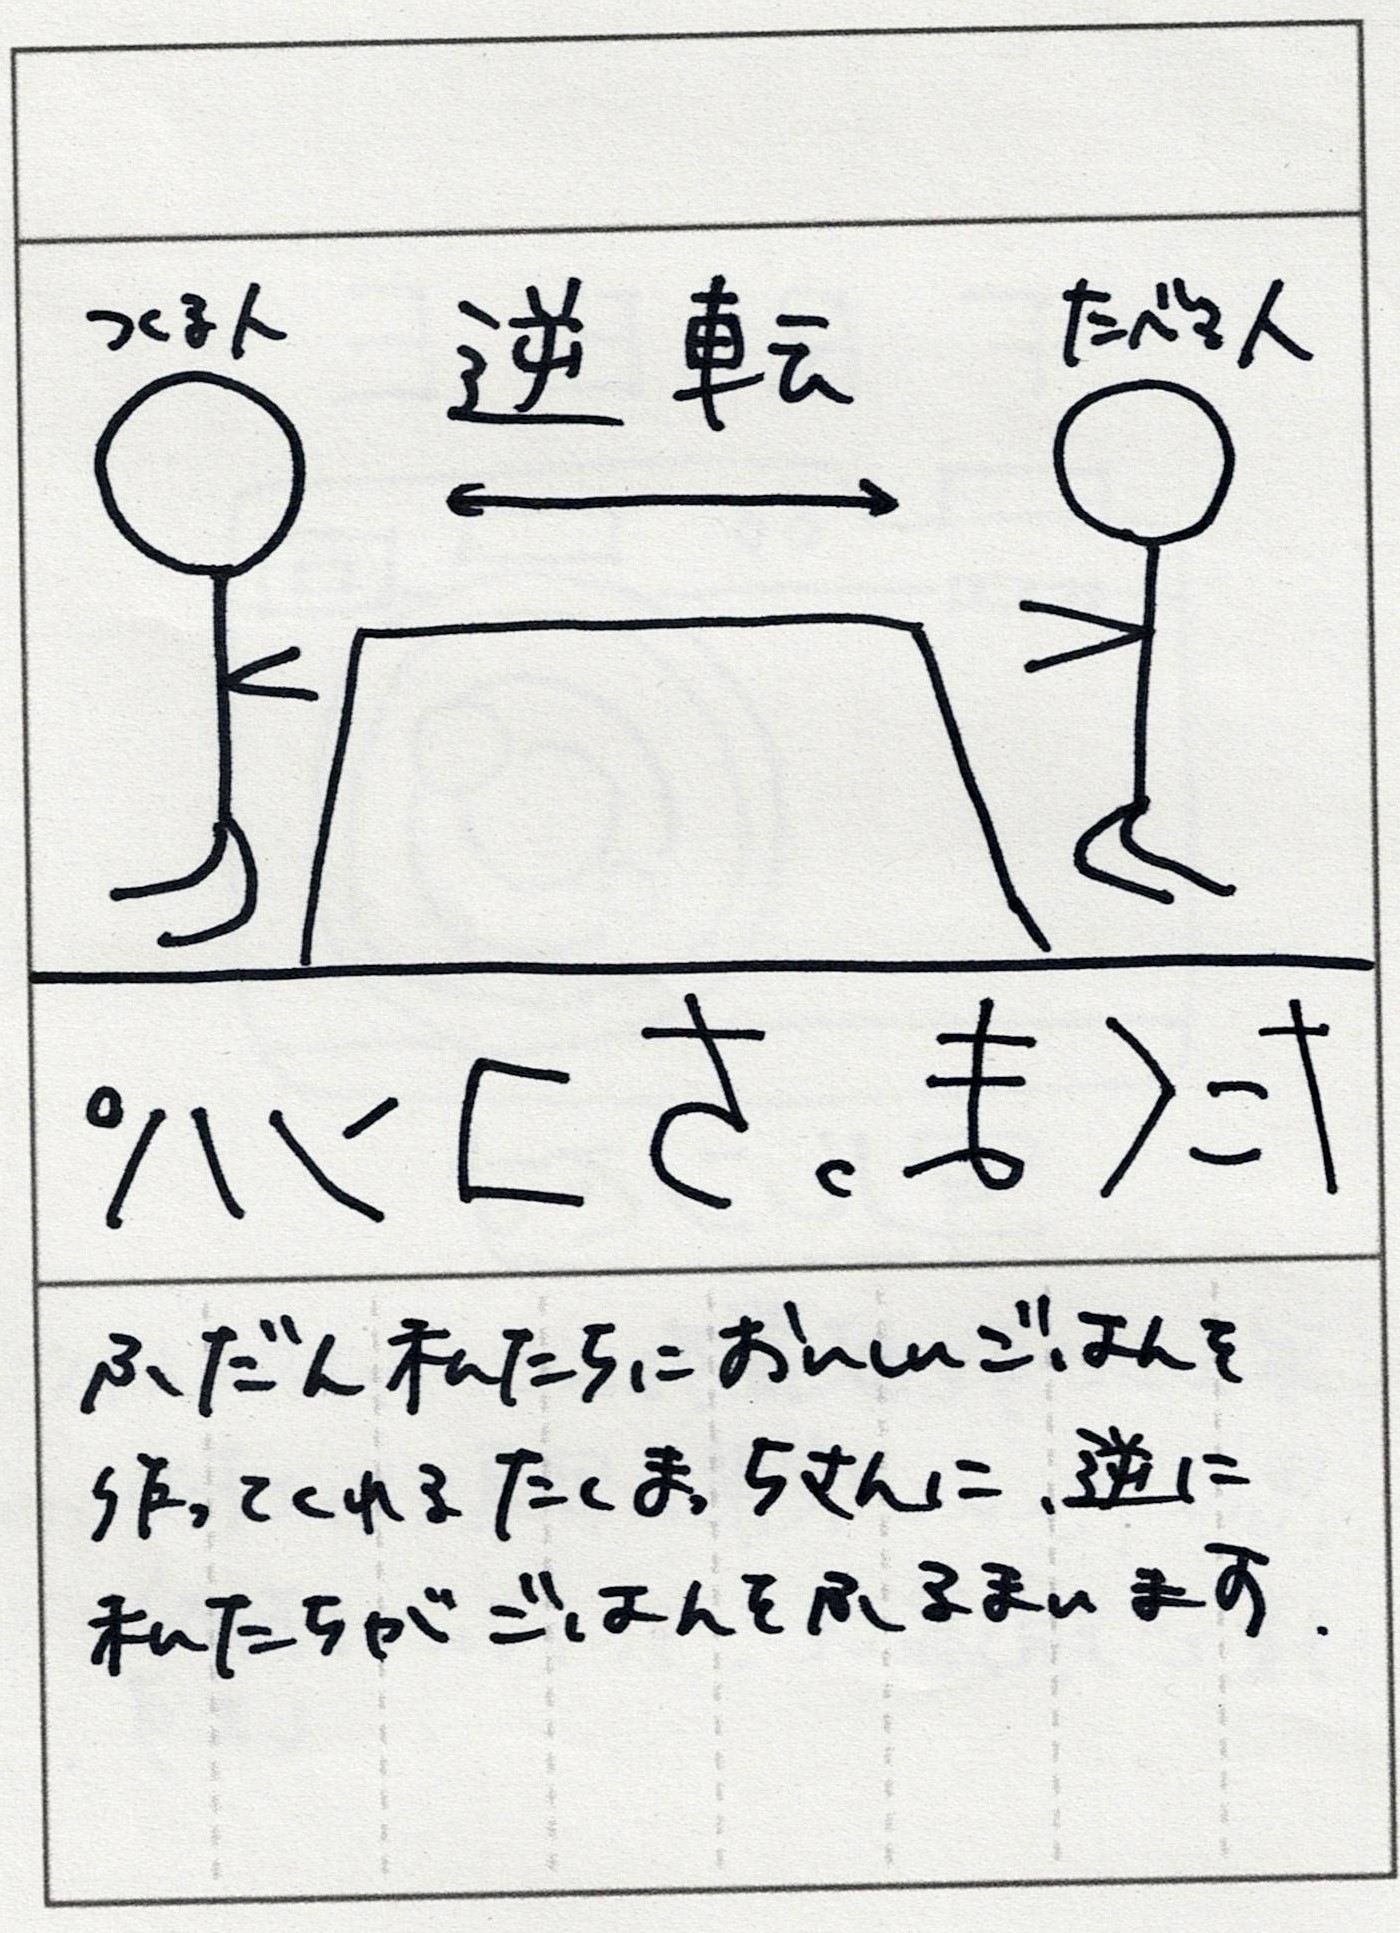 つくる人 逆転 たべる人
たくまっちコンパ
ふだん私たちにおいしいごはんを
作ってくれるたくまっちさんに、逆に
私たちがごはんをふるまいます.